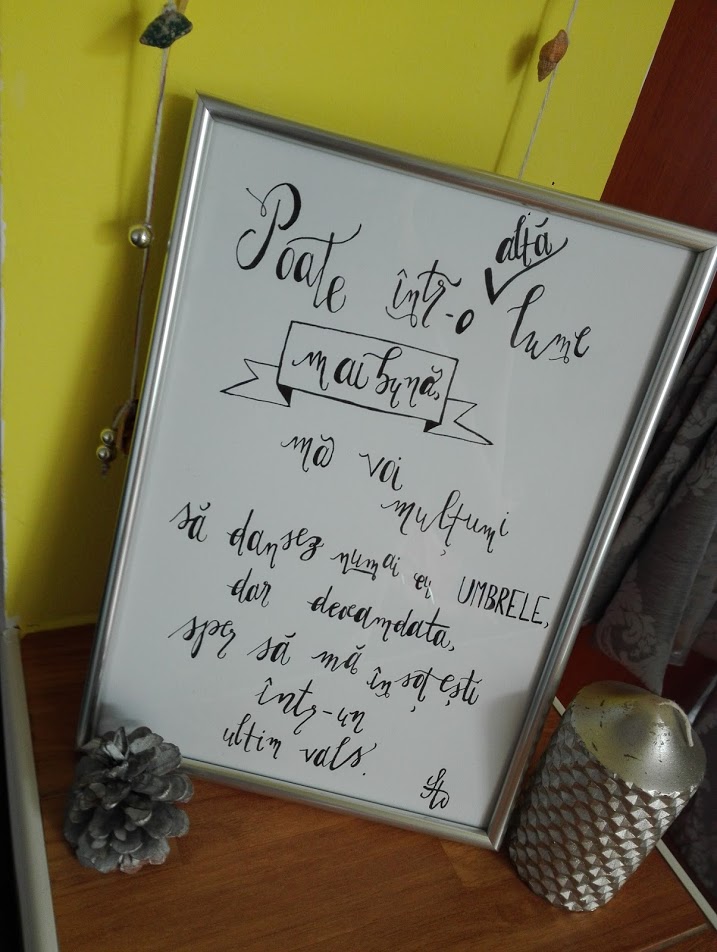 Poate într-o altă lume
mai bună,
mă voi
mulțumi
să dansez numai cu UMBRELE,
dar deocamdata,
sper să mă însoțești
într-un
ultim vals.